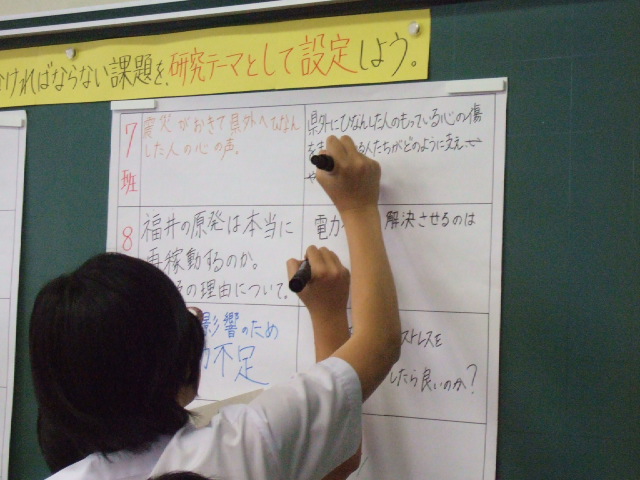 ければならない課題を、研究テーマとして設定しよう。
7班
震災がおきて県外へひなん
した人の心の声。
県外にひなんした人のもっている心の傷
を
る人たちがどのように支え
や
8
福井の原発は本当に
再稼動するのか。
の理由について。
電力
解決させるのは
影響のため
不足
ストレスを
したら良いのか?